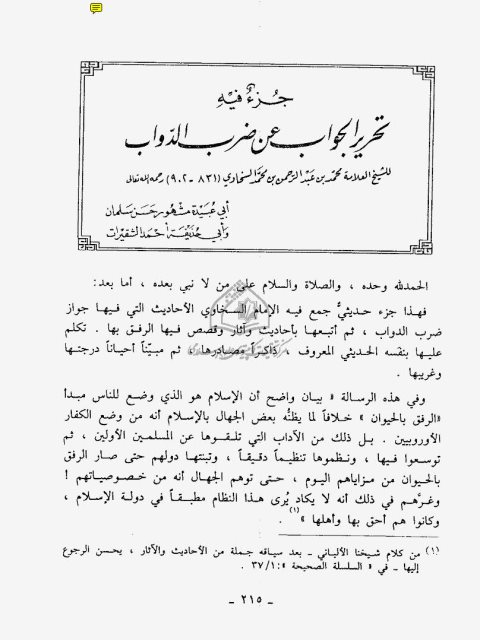 جزء فيه
تحرير الجواب عن ضرب الدواب
للشيخ العلامة محمد بن عبد الرحمن بن محمد السخاوي (٨٣١ - ٩٠٢) رحمه الله تعالى
أبي عبيدة مشهور حسن سلمان
وأبي حذيفة أحمد الشقيرات
الحمدلله وحده ، والصلاة والسلام على من لا نبي بعده ، أما بعد:
فهذا جزء حديثيٌّ جمع فيه الإمام السخاوي الأحاديث التي فيها جواز
ضرب الدواب ، ثم أتبعها بأحاديث وآثار وقصص فيها الرفق بها . تكلم
عليها بنفسه الحديثي المعروف ، ذاكراً مصادرها ، ثم مبيّناً أحياناً درجتها
وغريبها .
وفي هذه الرسالة « بيان واضح أن الإسلام هو الذي وضع للناس مبدأ
«الرفق بالحيوان » خلافاً لما يظنُّه بعض الجهال بالإسلام أنه من وضع الكفار
الأوروبيين . بل ذلك من الآداب التي تلقوها عن المسلمين الأولين ، ثم
توسعوا فيها ، ونظموها تنظيماً دقيقاً ، وتبنتها دولهم حتى صار الرفق
بالحيوان من مزاياهم اليوم ، حتى توهم الجهال أنه من خصوصياتهم !
وغرّهم في ذلك أنه لا يكاد يُرى هذا النظام مطبقاً في دولة الإسلام ،
وكانوا هم أحق بها وأهلها »(١) .
(١) من كلام شيخنا الألباني ـ بعد سياقه جملة من الأحاديث والآثار ، يحسن الرجوع
إليها ـ في « السلسلة الصحيحة »: ٣٧/١ .
ـ ٢١٥ ـ